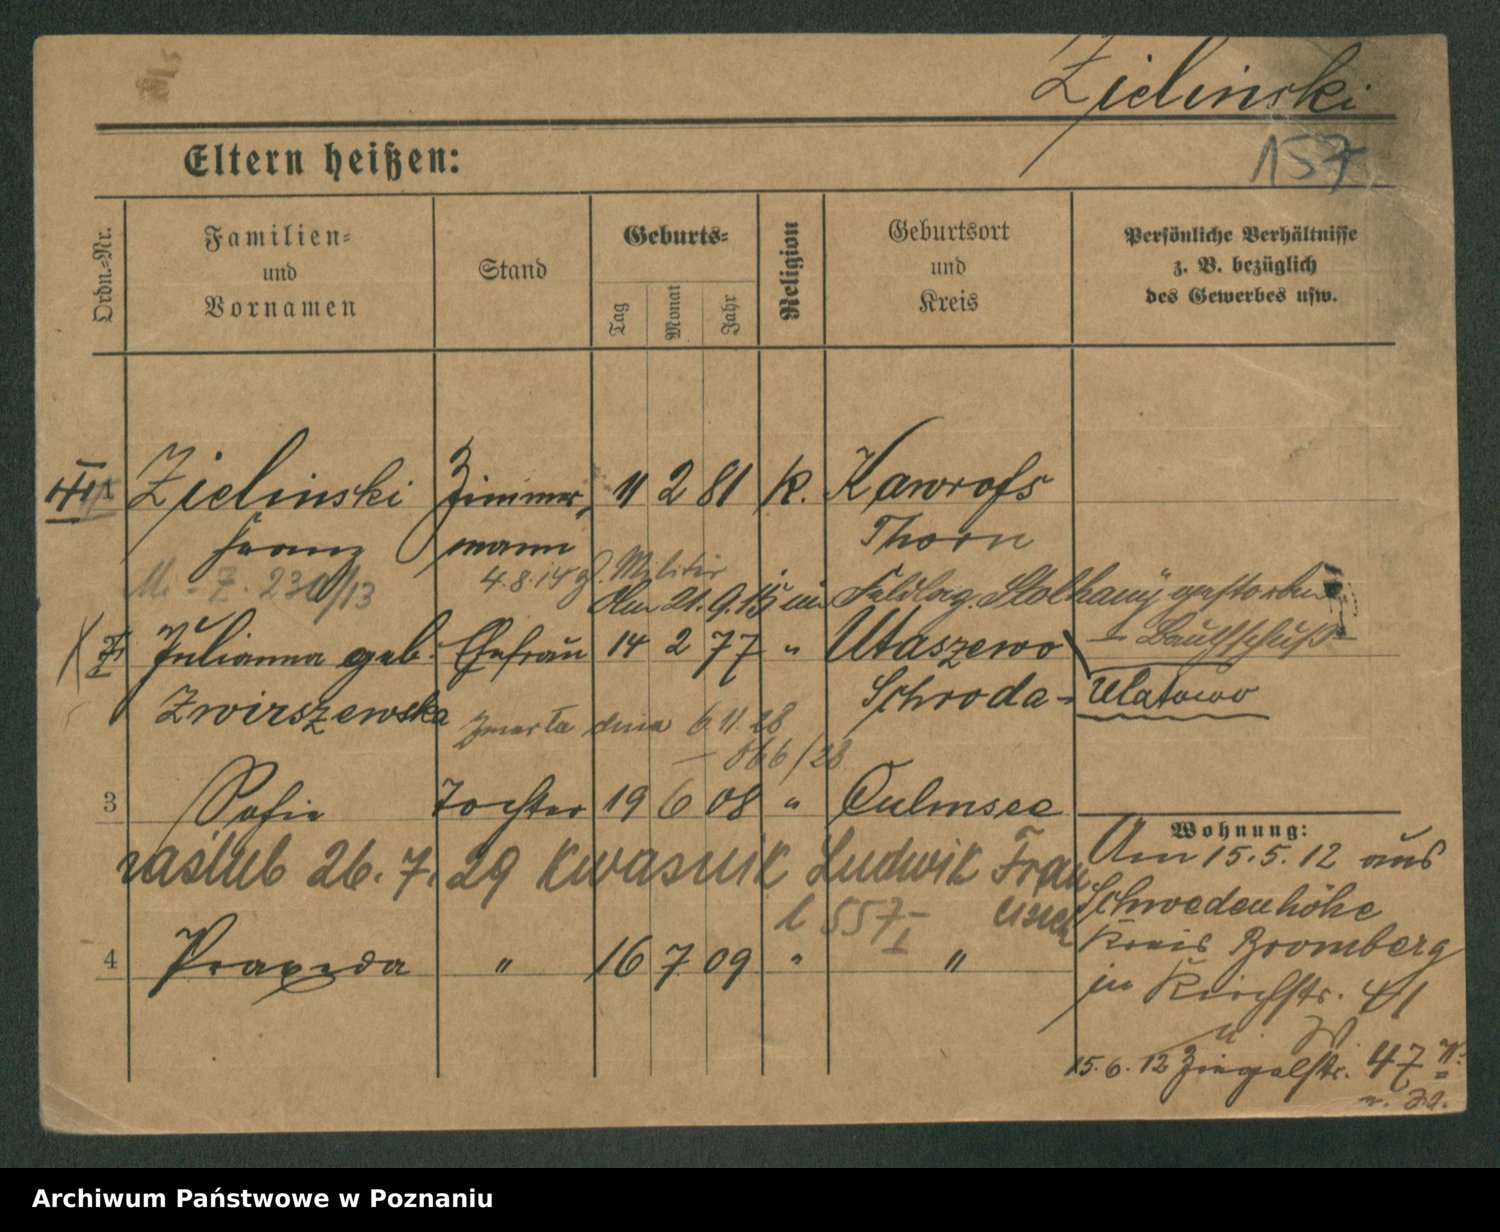 Zielinski
157
Eltern heißen:
Ordn.=Nr.
Familien=
und
Vornamen
Stand
Geburts=
Tag
Monat
Jahr
Religion
Geburtsort
und
Kreis
Persönliche Verhältnisse
z. B. bezüglich
des Gewerbes usw.
1 Zielinski Zimmer 11 2 81 k. Kawrofs
Franz mann Thorn
M. Z. 230/13 4.8.14 z. Militär
Am 21.9.15 im Feldlag. gestorben
Julianna geb. Ehefrau 14 2 77 " Utaszewo – Bauchschuß –
Zwirszewska Schroda – Ulatowo
zmarła dnia 6.11.28
– 866/28
3 Sofie Tochter 19 6 08 " Culmsee
Wohnung:
zaślub 26.7.29 Kwasnik Ludwik Fran
ciszek
l 557 I
4 Praxeda " 16 7 09 " "
Am 15.5.12 aus
Schwedenhöhe
Kreis Bromberg
in Kirchstr. 41
15.6.12 Ziegelstr. 47
Archiwum Państwowe w Poznaniu